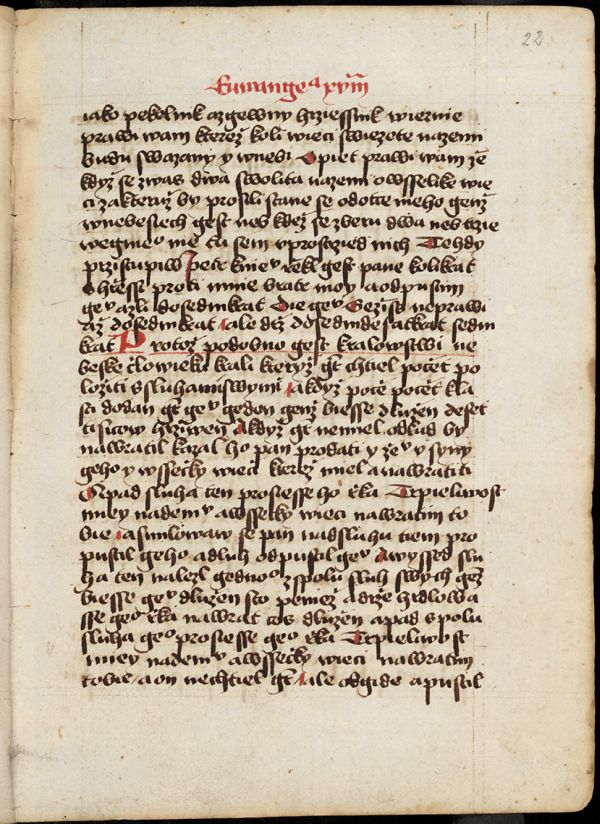 22
Ewange^a xviii
iako pekelnik azgewny hrziessnik wiernie
prawi wam kterež koli wieci swiežete nazemi
budu swazany y wnebi Opiet prawi wam že
když se zwas dwa swolita nazemi owsselike wie
ci zakteruž by prosili stane se odotce meho genž
wnebesiech gest neb kdež se zberu dwa neb trzie
wegme^u me tu sem vprostried nich Tehdy
przistupiw petr knie^u rekl gest pane kolikrat
shrziessie proti mnie bratr moy aodpustim
ge^u azli dosedmkrat Die ge^u Gežiss neprawi
až dosedmkrat ale dož dosedmdesatkrat sedm
krat Protož podobno gest kralowstwi ne
beske člowieku krali kteryž gt chtiel počet po
ložiti ssluhamiswymi akdyž poče počet kla
sti dodan gt ge^u geden genž biesse dlužen deset
tisicow hrziwen Akdyž gt nemiel odkud by
nawratil kazal ho pan prodati y že^u y syny
geho y wssečky wieci kterež miel anawratiti
Apad sluha ten prosiesse ho rka Trpieliwost
miey nademˇu awssečky wieci nawratim to
bie asmilowaw se pan nadsluhu tiem pro
pustil geho adluh odpustil ge^u Awyssed slu
ha ten nalezl gednoᵒ zspolu sluh swych genž
biesse ge^u dlužen sto peniez adrže hrdlowa
sse geᵒ rka nawrat cos dlužen apad spolu
sluha geᵒ prosiesse geᵒ rka Trpieliwost
miey nadem^u awssečky wieci nawratim
tobie aon nechtiel gt ale odgide apustil